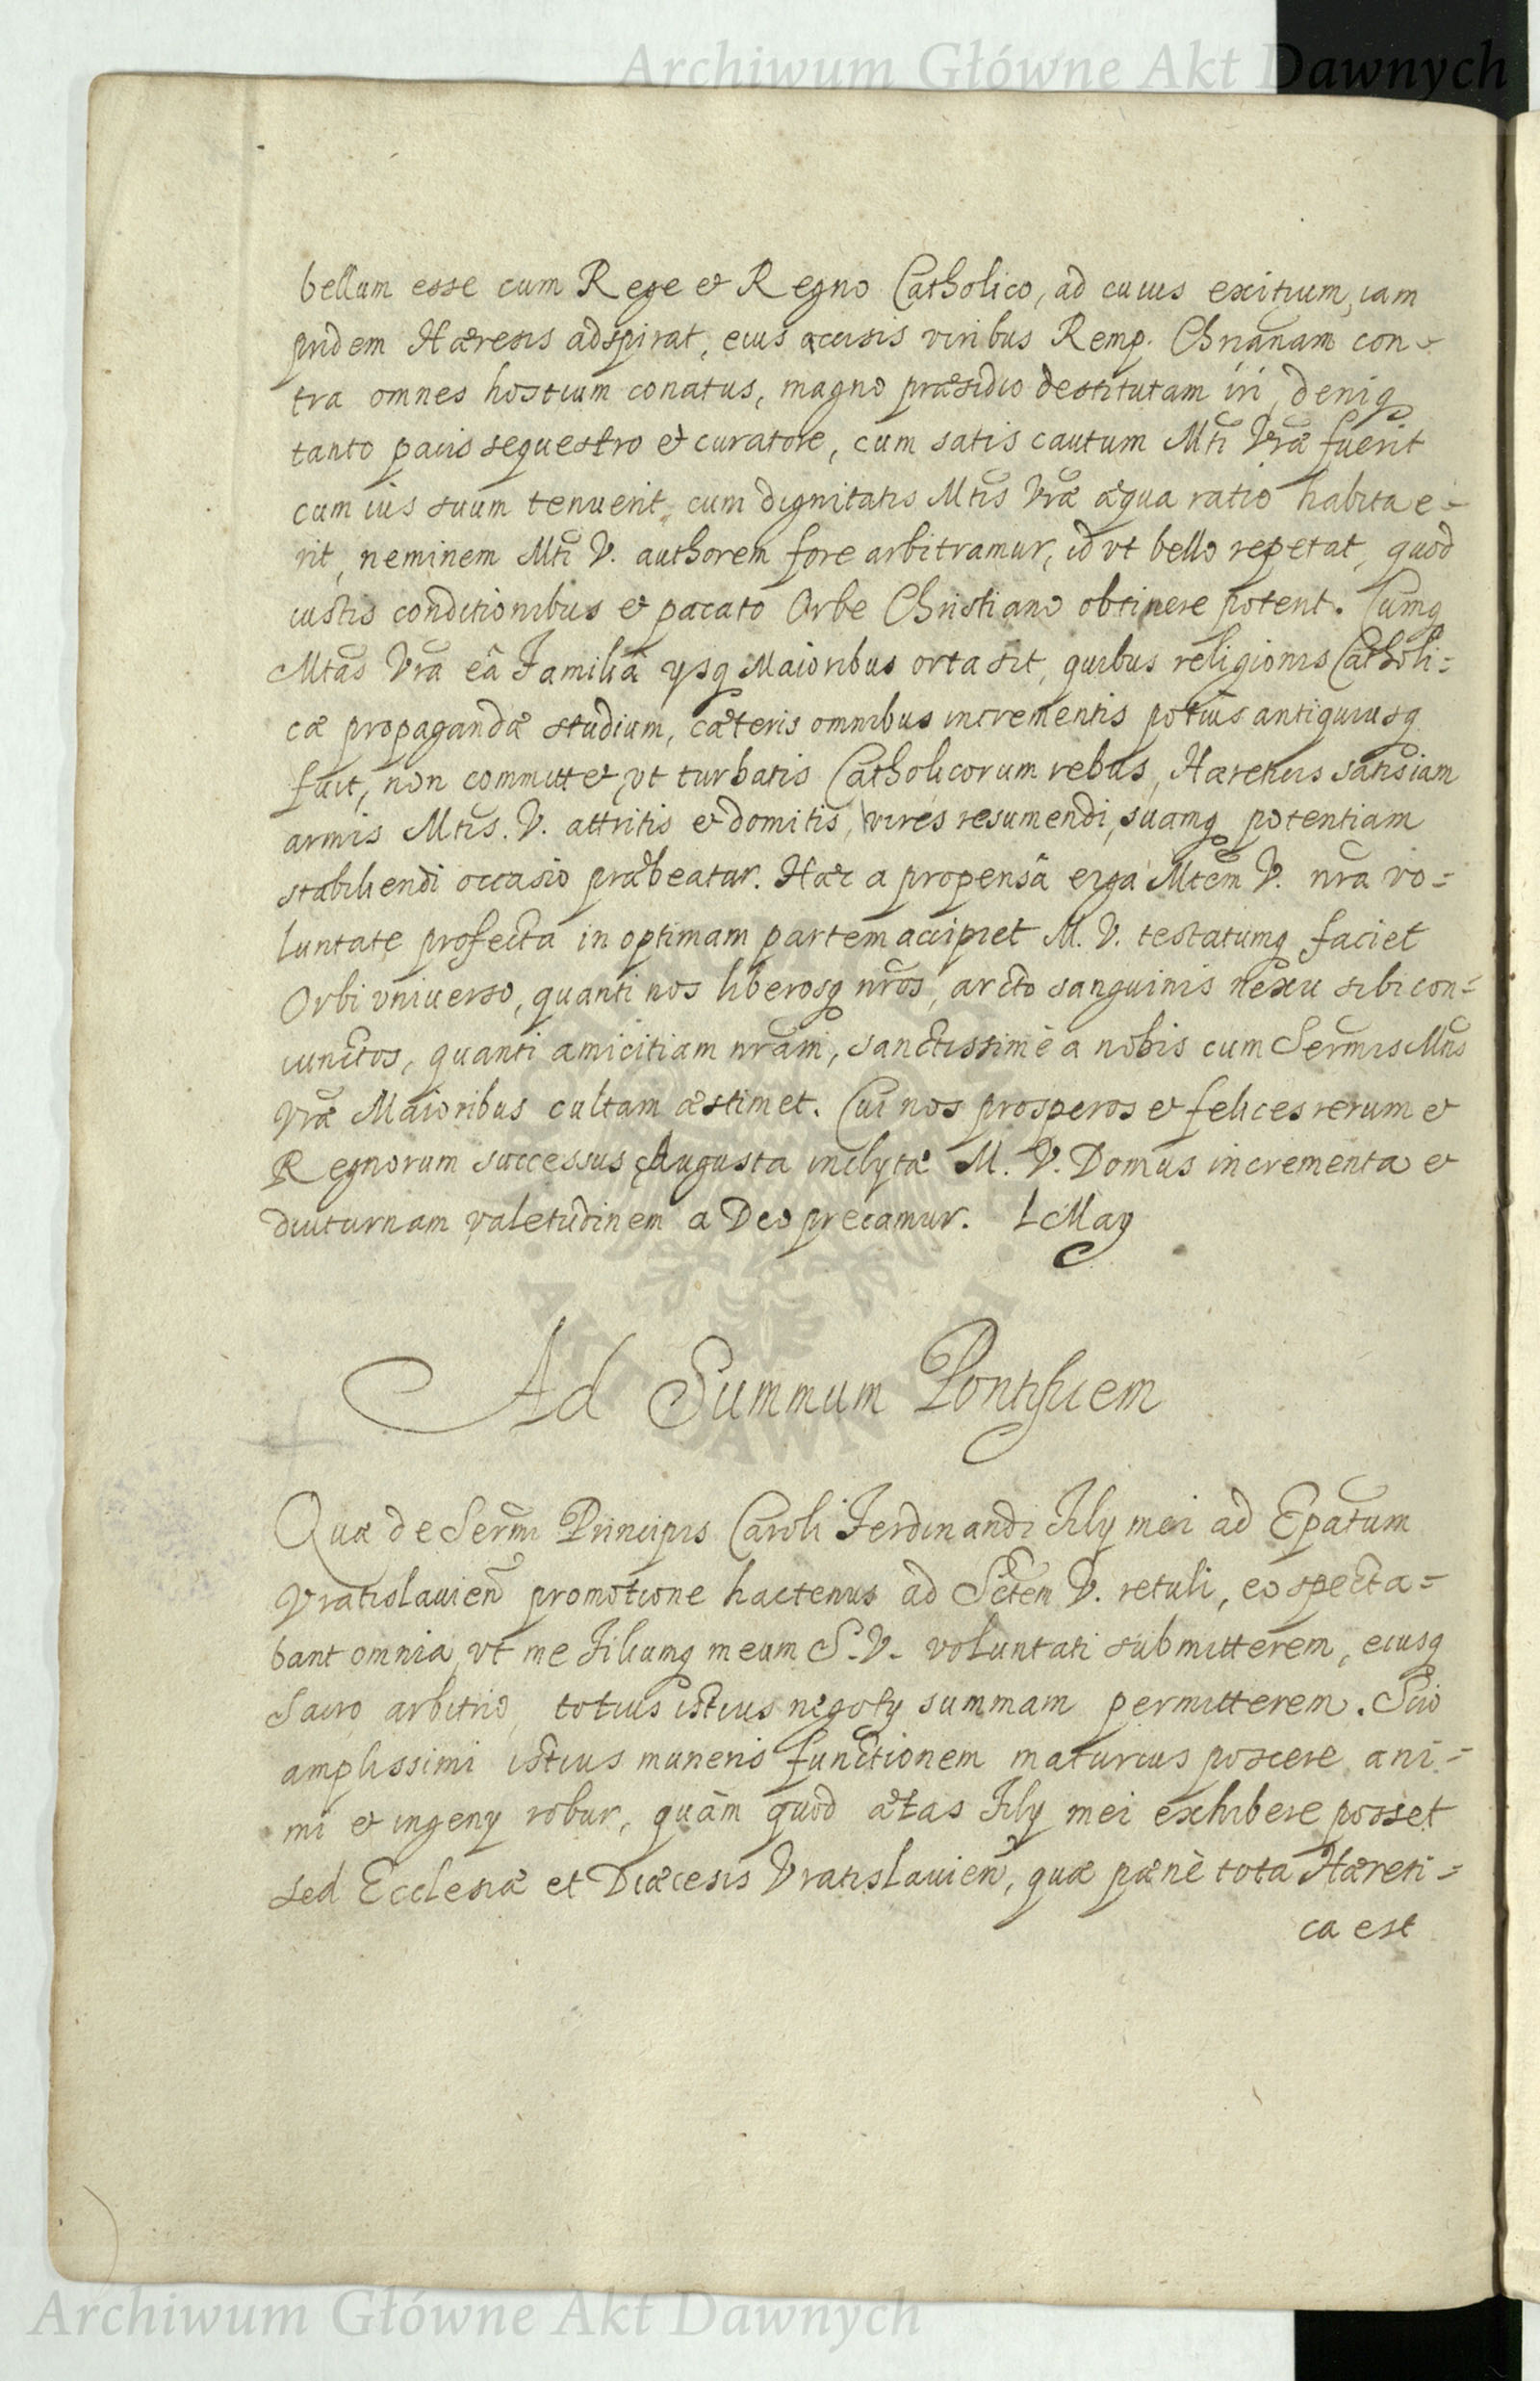 Archiwum Główne Akt Dawnych
bellum esse cum Rege et Regno Catholico, ad cuius exitium, iam
pridem Hæresis adspirat, eius accisis viribus Remp. Chrianam con-
tra omnes hostium conatus, magno præsidio destitutam iri, deniq
tanto pacis sequestro et curatore, cum satis cautum Mti Vræ fuerit
cum ius suum tenuerit, cum dignitatis Mtis Vræ æqua ratio habita e-
rit, neminem Mti V. authorem fore arbitramur, id vt bello repetat, quod
iustis conditionibus et pacato Orbe Christiano obtinere potent. Cumq
Mtas Vra eâ Familiâ ysq Maioribus orta sit, quibus religionis Catholi=
cæ propagandæ studium, cæteris omnibus incrementis potius antiquiusq
fuit, non committet, vt turbatis Catholicorum rebus, Hæreticis satis iam
armis Mtis. V. attritis et domitis, vires resumendi, suamq potentiam
stabiliendi occasio præbeatur. Hæc a propensâ erga Mtem V. nra vo=
luntate profecta in optimam partem accipiet M. V. testatumq faciet
Orbi vniuerso, quanti nos liberosq nros, arcto sanguinis nexu sibi con=
iunctos, quanti amicitiam nram, sanctissimè a nobis cum Sermis Mtis
Vræ Maioribus cultam æstimet. Cui nos prosperos et felices rerum et
Regnorum successus, Augusta inclytæ M. V. Domus incrementa et
diuturnam valetudinem a Deo precamur. L May
Ad Summum Pontificem
Quæ de Sermi Principis Caroli Ferdinandi Fily mei ad Epatum
Vratislauien promotione hactenus ad Sctem V. retuli, eo specta=
bant omnia, vt me Filiumq meum S. V. voluntati submitterem, eiusq
Sacro arbitrio, totius istius negoty summam permitterem. Scio
amplissimi istius muneris functionem maturius poscere ani=
mi et ingeny robur, quàm quod ætas Fily mei exhibere posset
sed Ecclesiæ et Diæcesis Vratislauien, quæ pænè tota Hæreti=
ca est
Archiwum Główne Akt Dawnych